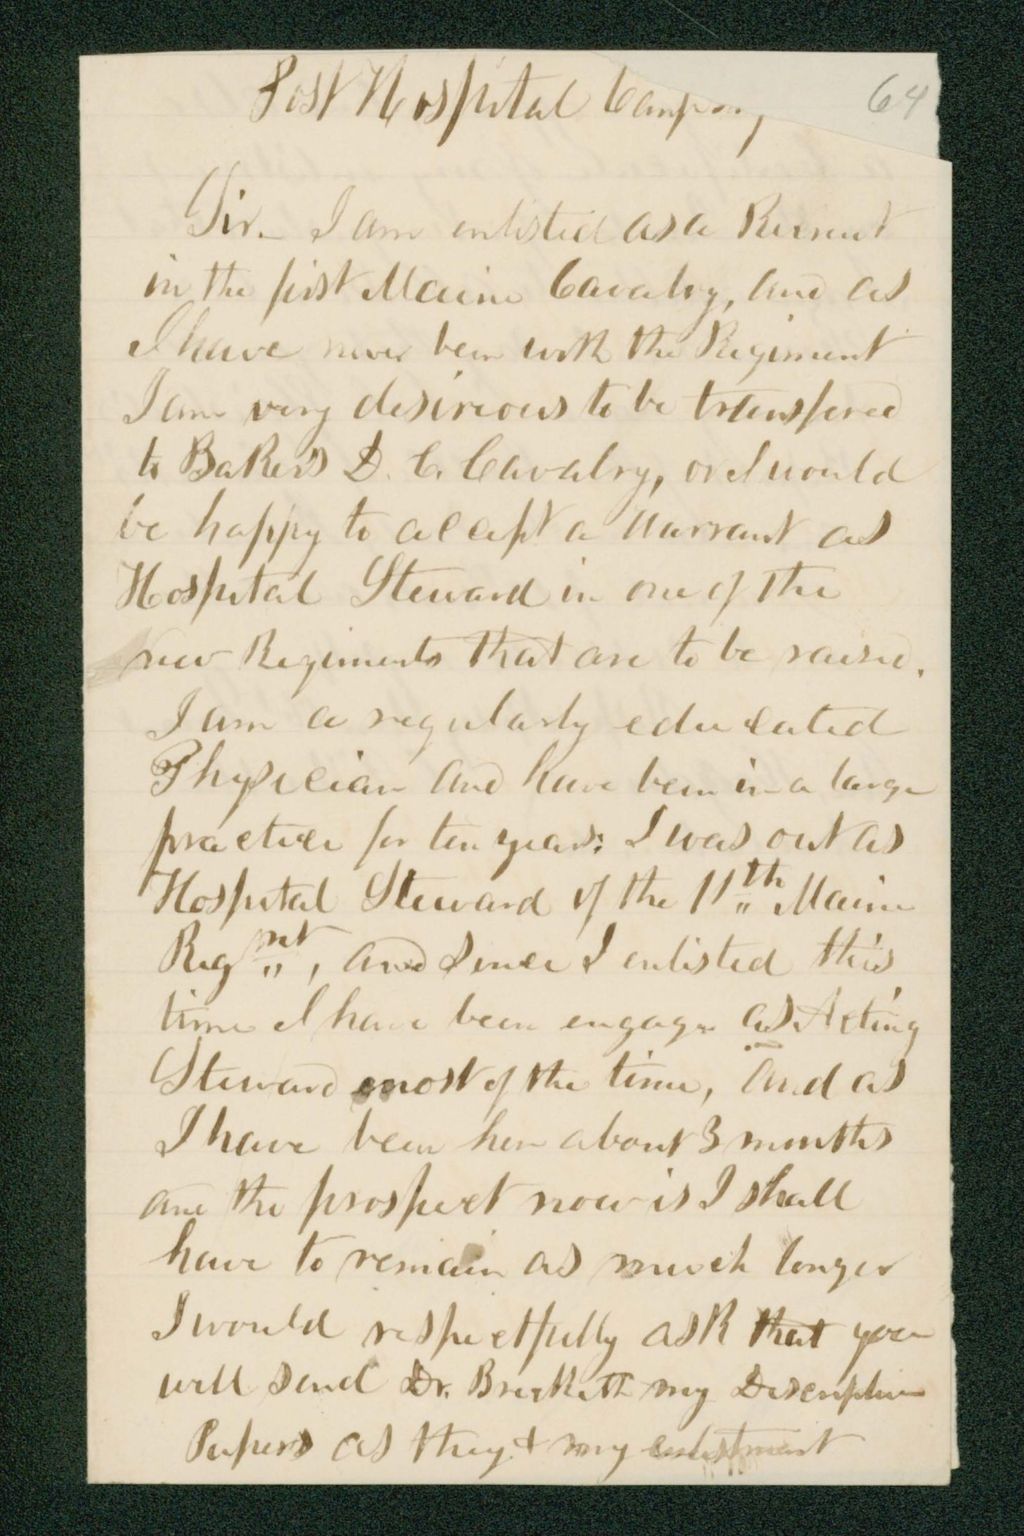 64
Post Hospital Camp
Sir. I am enlisted as a Recruit
in the first Maine Cavalry, and as
I have never been with the Regiment
I am very desireous to be transfered
to Baker's D. C. Cavalry, or I would
be happy to accept a Warrant as
Hospital Steward in one of the
new Regiments that are to be raised.
I am a regularly educated
Physician and have been in a large
practice for ten years: I was out as
Hospital Steward of the 11th Maine
Regmt, and since I enlisted this
time I have been engage as Acting
Steward most of the time, and as
I have been here about 3 months
and the prospect now is I shall
have to remain as much longer
I would respectfully ask that you
will send Dr. my Descriptive
Papers as they & my enlistment